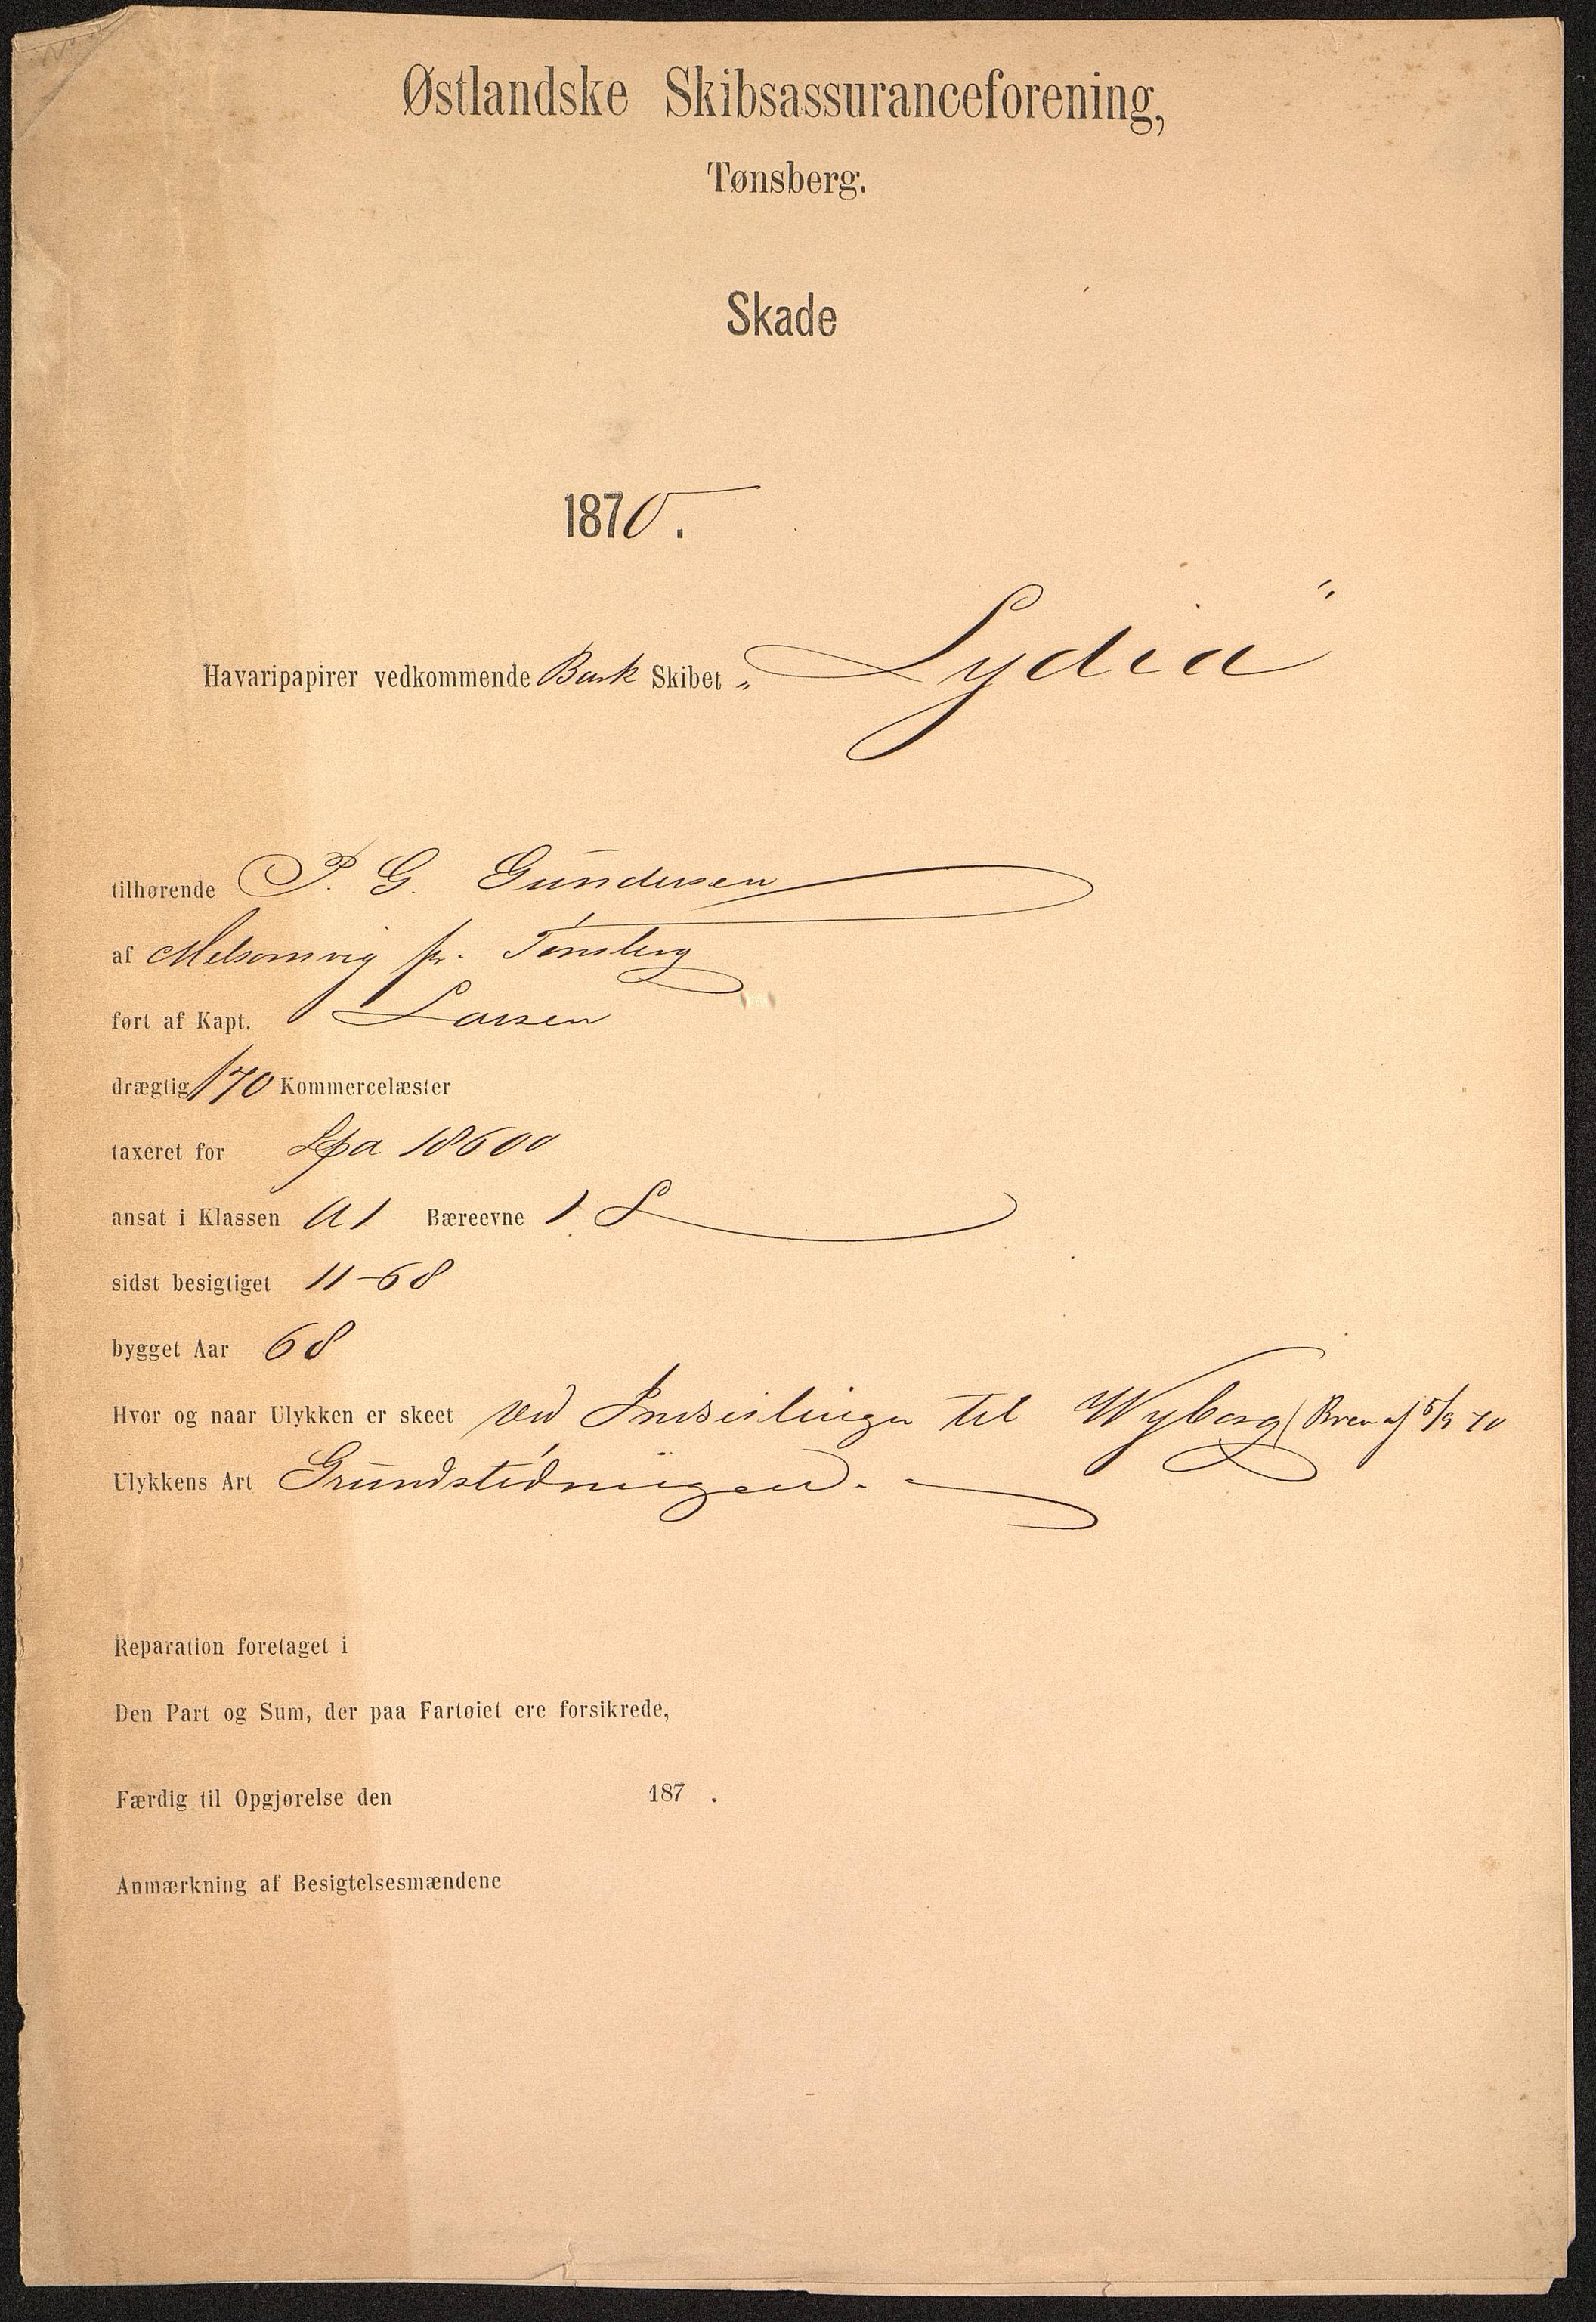 Østlandske Skibsassuranceforening,
Tønsberg.
Skade
1870.
Havaripapirer vedkommende Bark Skibet „Lydia“
tilhørende P. G. Gundersen
af Melsomvig pr. Tønsberg
ført af Kapt. Larsen
drægtig 170 Kommercelæster
taxeret for Spd 18600
ansat i Klassen A1 Bæreevne 1.
sidst besigtiget 11-68
bygget Aar 68
Hvor og naar Ulykken er skeet ved Indseilingen til Wyborg (Brev af 5/9 70
Ulykkens Art Grundstødningen.
Reparation foretaget i
Den Part og Sum, der paa Fartøiet ere forsikrede,
Færdig til Opgjørelse den 187 .
Anmærkning af Besigtelsesmændene